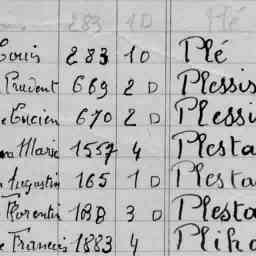 283 1D Plé
Louis 283 1D Plé
Prudent 669 2 D Plessis
Lucien 670 2 D Plessi
Marie 1557 4 Plesta
Augustin 165 1 D Plesta
Florentin 3 D Plesta
Francis 1883 4